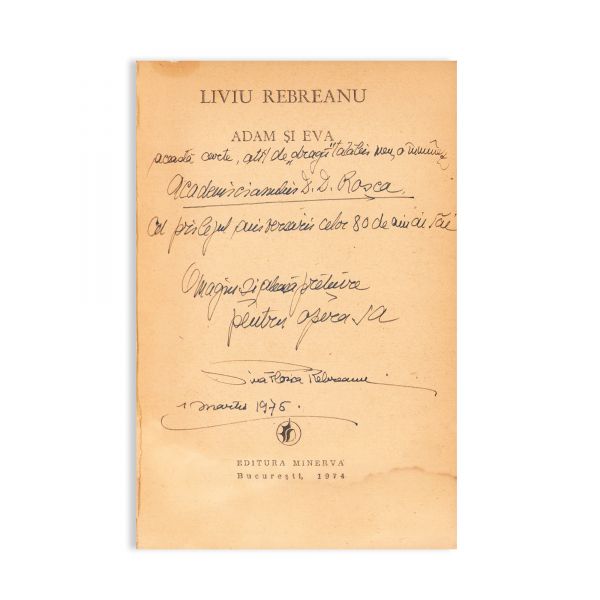 LIVIU REBREANU
ADAM ȘI EVA
această carte, atît de „dragă” tatălui meu, o
Academicianului D. D. Roșca,
cu prilejul aniversării celor 80 de ani ai săi
Omagiu și aleasă prețuire
pentru opera sa
Puia Florica Rebreanu
1 martie 1975.
EDITURA MINERVA
București, 1974